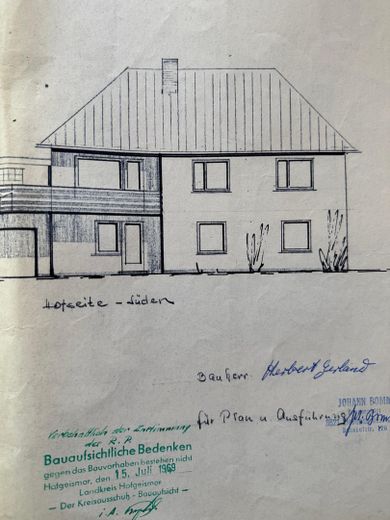 Hofseite - Süden
Bauherr: Herbert Gerland
für Plan u. Ausführung
JOHANN
Vorbehaltlich der Zustimmung
der R.P.
Bauaufsichtliche Bedenken
gegen das Bauvorhaben bestehen nicht
Hofgeismar, den 15. Juli 1969
Landkreis Hofgeismar
– Der Kreisausschuß - Bauaufsicht –
i.A.